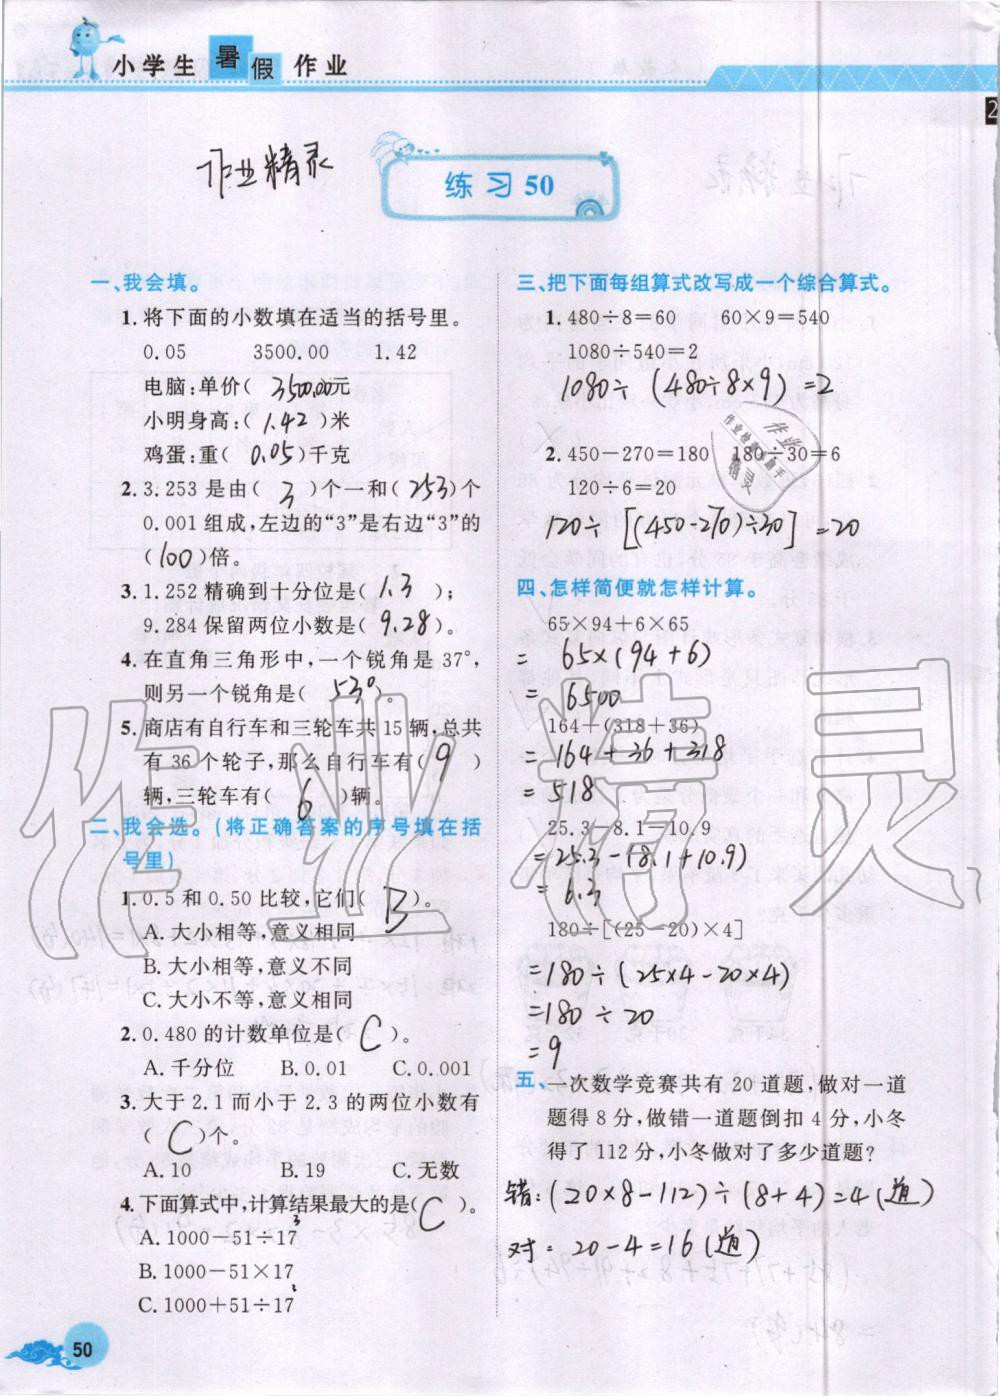 小学生暑假作业
2
作业精灵
练习50
一、我会填。
1.将下面的小数填在适当的括号里。
0.05 3500.00 1.42
电脑:单价(3500.00元
小明身高:(1.42)米
鸡蛋:重(0.05)千克
2.3.253是由(3)个一和(253)个
0.001组成,左边的“3”是右边“3”的
(100)倍。
3.1.252精确到十分位是(1.3);
9.284保留两位小数是(9.28)。
4.在直角三角形中,一个锐角是37°,
则另一个锐角是(53°)。
5.商店有自行车和三轮车共15辆,总共
有36个轮子,那么自行车有(9)
辆,三轮车有(6)辆。
二、我会选。(将正确答案的序号填在括
号里)
1.0.5和0.50比较,它们(B)。
A.大小相等,意义相同
B.大小相等,意义不同
C.大小不等,意义相同
2.0.480的计数单位是(C)。
A.千分位 B.0.01 C.0.001
3.大于2.1而小于2.3的两位小数有
(C)个。
A.10 B.19 C.无数
4.下面算式中,计算结果最大的是(C)。
A.1000-51÷17 3
B.1000-51×17
C.1000+51÷17
50
三、把下面每组算式改写成一个综合算式。
1.480÷8=60 60×9=540
1080÷540=2
1080÷(480÷8×9)=2
2.450-270=180 180÷30=6
120÷6=20
120÷[(450-270)÷30]=20
作业
作业检查小助手
精灵
四、怎样简便就怎样计算。
65×94+6×65
=65×(94+6)
=6500
164+(318+36)
=164+36+318
=518
25.3-8.1-10.9
=25.3-(8.1+10.9)
=6.3
180÷[(25-20)×4]
=180÷(25×4-20×4)
=180÷20
=9
五、一次数学竞赛共有20道题,做对一道
题得8分,做错一道题倒扣4分,小冬
得了112分,小冬做对了多少道题?
错:(20×8-112)÷(8+4)=4(道)
对:20-4=16(道)
作业精灵